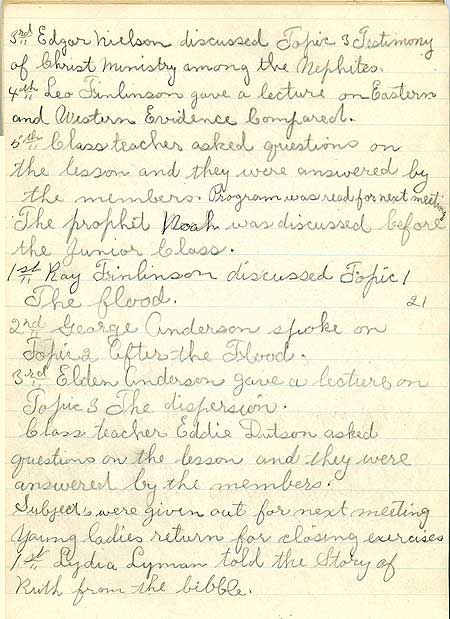 3rd Edgar Nielson discussed Topic 3 Testimony
of Christ Ministry among the Nephites.
4th Leo Finlinson gave a lecture on Eastern
and Western Evidence Compared.
5th Class teacher asked questions on
the lesson and they were answered by
the members. Program was read for next meeting
The prophet Noah was discussed before
the Junior Class.
1st Ray Finlinson discussed Topic 1
The flood. 21
2rd George Anderson spoke on
Topic 2 After the Flood.
3rd Elden Anderson gave a lecture on
Topic 3 The dispersion.
Class teacher Eddie Dutson asked
questions on the lesson and they were
answered by the members.
Subjects were given out for next meeting
Young ladies return for closing exercises
1st Lydia Lyman told the Story of
Ruth from the bibble.